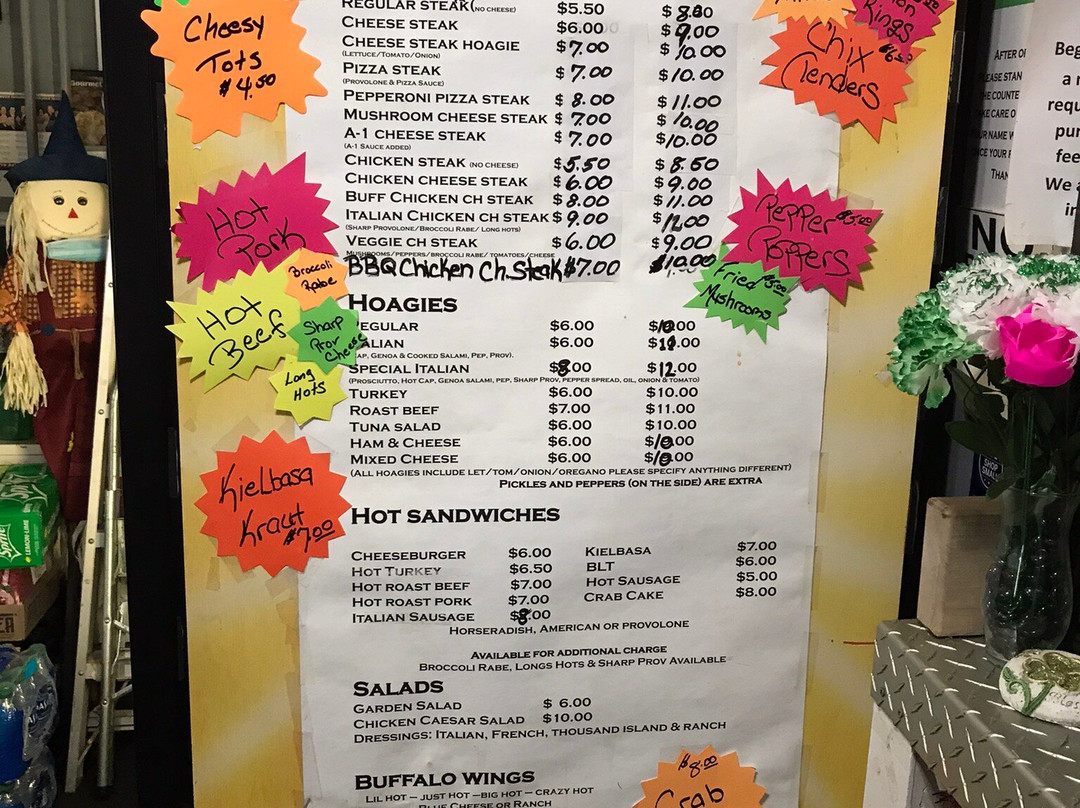 Cheesy
Tots
$4.50
REGULAR STEAK (NO CHEESE) $5.50
CHEESE STEAK $6.00 $9.00
CHEESE STEAK HOAGIE $7.00 $10.00
(LETTUCE/TOMATO/ONION)
PIZZA STEAK $7.00 $10.00
(PROVOLONE & PIZZA SAUCE)
PEPPERONI PIZZA STEAK $8.00 $11.00
MUSHROOM CHEESE STEAK $7.00 $10.00
A-1 CHEESE STEAK $7.00 $10.00
(A-1 SAUCE ADDED)
CHICKEN STEAK (NO CHEESE) $5.50 $8.50
CHICKEN CHEESE STEAK $6.00 $9.00
BUFF CHICKEN CH STEAK $8.00 $11.00
ITALIAN CHICKEN CH STEAK $9.00 $12.00
(SHARP PROVOLONE/BROCCOLI RABE/ LONG HOTS)
VEGGIE CH STEAK $6.00 $9.00
MUSHROOMS/PEPPERS/BROCCOLI RABE/ TOMATOES/CHEESE
BBQ Chicken Ch. Steak $7.00 $10.00
Chix
Tenders
Hot
Pork
Broccoli
Rabe
Hot
Beef
Sharp
Prov
Cheese
Long
Hots
Pepper $5.00
Poppers
Fried $5.00
Mushrooms
Kielbasa
Kraut
$7.00
HOAGIES
EGULAR $6.00 $10.00
ALIAN $6.00 $11.00
AP, GENOA & COOKED SALAMI, PEP, PROV).
SPECIAL ITALIAN $8.00 $12.00
(PROSCIUTTO, HOT CAP, GENOA SALAMI, PEP, SHARP PROV, PEPPER SPREAD, OIL, ONION & TOMATO)
TURKEY $6.00 $10.00
ROAST BEEF $7.00 $11.00
TUNA SALAD $6.00 $10.00
HAM & CHEESE $6.00 $10.00
MIXED CHEESE $6.00 $10.00
(ALL HOAGIES INCLUDE LET/TOM/ONION/OREGANO PLEASE SPECIFY ANYTHING DIFFERENT)
PICKLES AND PEPPERS (ON THE SIDE) ARE EXTRA
HOT SANDWICHES
CHEESEBURGER $6.00 KIELBASA $7.00
HOT TURKEY $6.50 BLT $6.00
HOT ROAST BEEF $7.00 HOT SAUSAGE $5.00
HOT ROAST PORK $7.00 CRAB CAKE $8.00
ITALIAN SAUSAGE $8.00
HORSERADISH, AMERICAN OR PROVOLONE
AVAILABLE FOR ADDITIONAL CHARGE
BROCCOLI RABE, LONGS HOTS & SHARP PROV AVAILABLE
SALADS
GARDEN SALAD $ 6.00
CHICKEN CAESAR SALAD $10.00
DRESSINGS: ITALIAN, FRENCH, THOUSAND ISLAND & RANCH
BUFFALO WINGS
LIL HOT – JUST HOT –BIG HOT – CRAZY HOT
BLUE CHEESE OR RANCH
$8.00
Crab
AFTER
EASE STAN
HE COUNTE
KE CARE O
R NAME
CE YOUR
THAN
NO
Beg
a
requ
pur
fee
We a
in
SHOP
SMALL
Sprite
LEMON-LIME